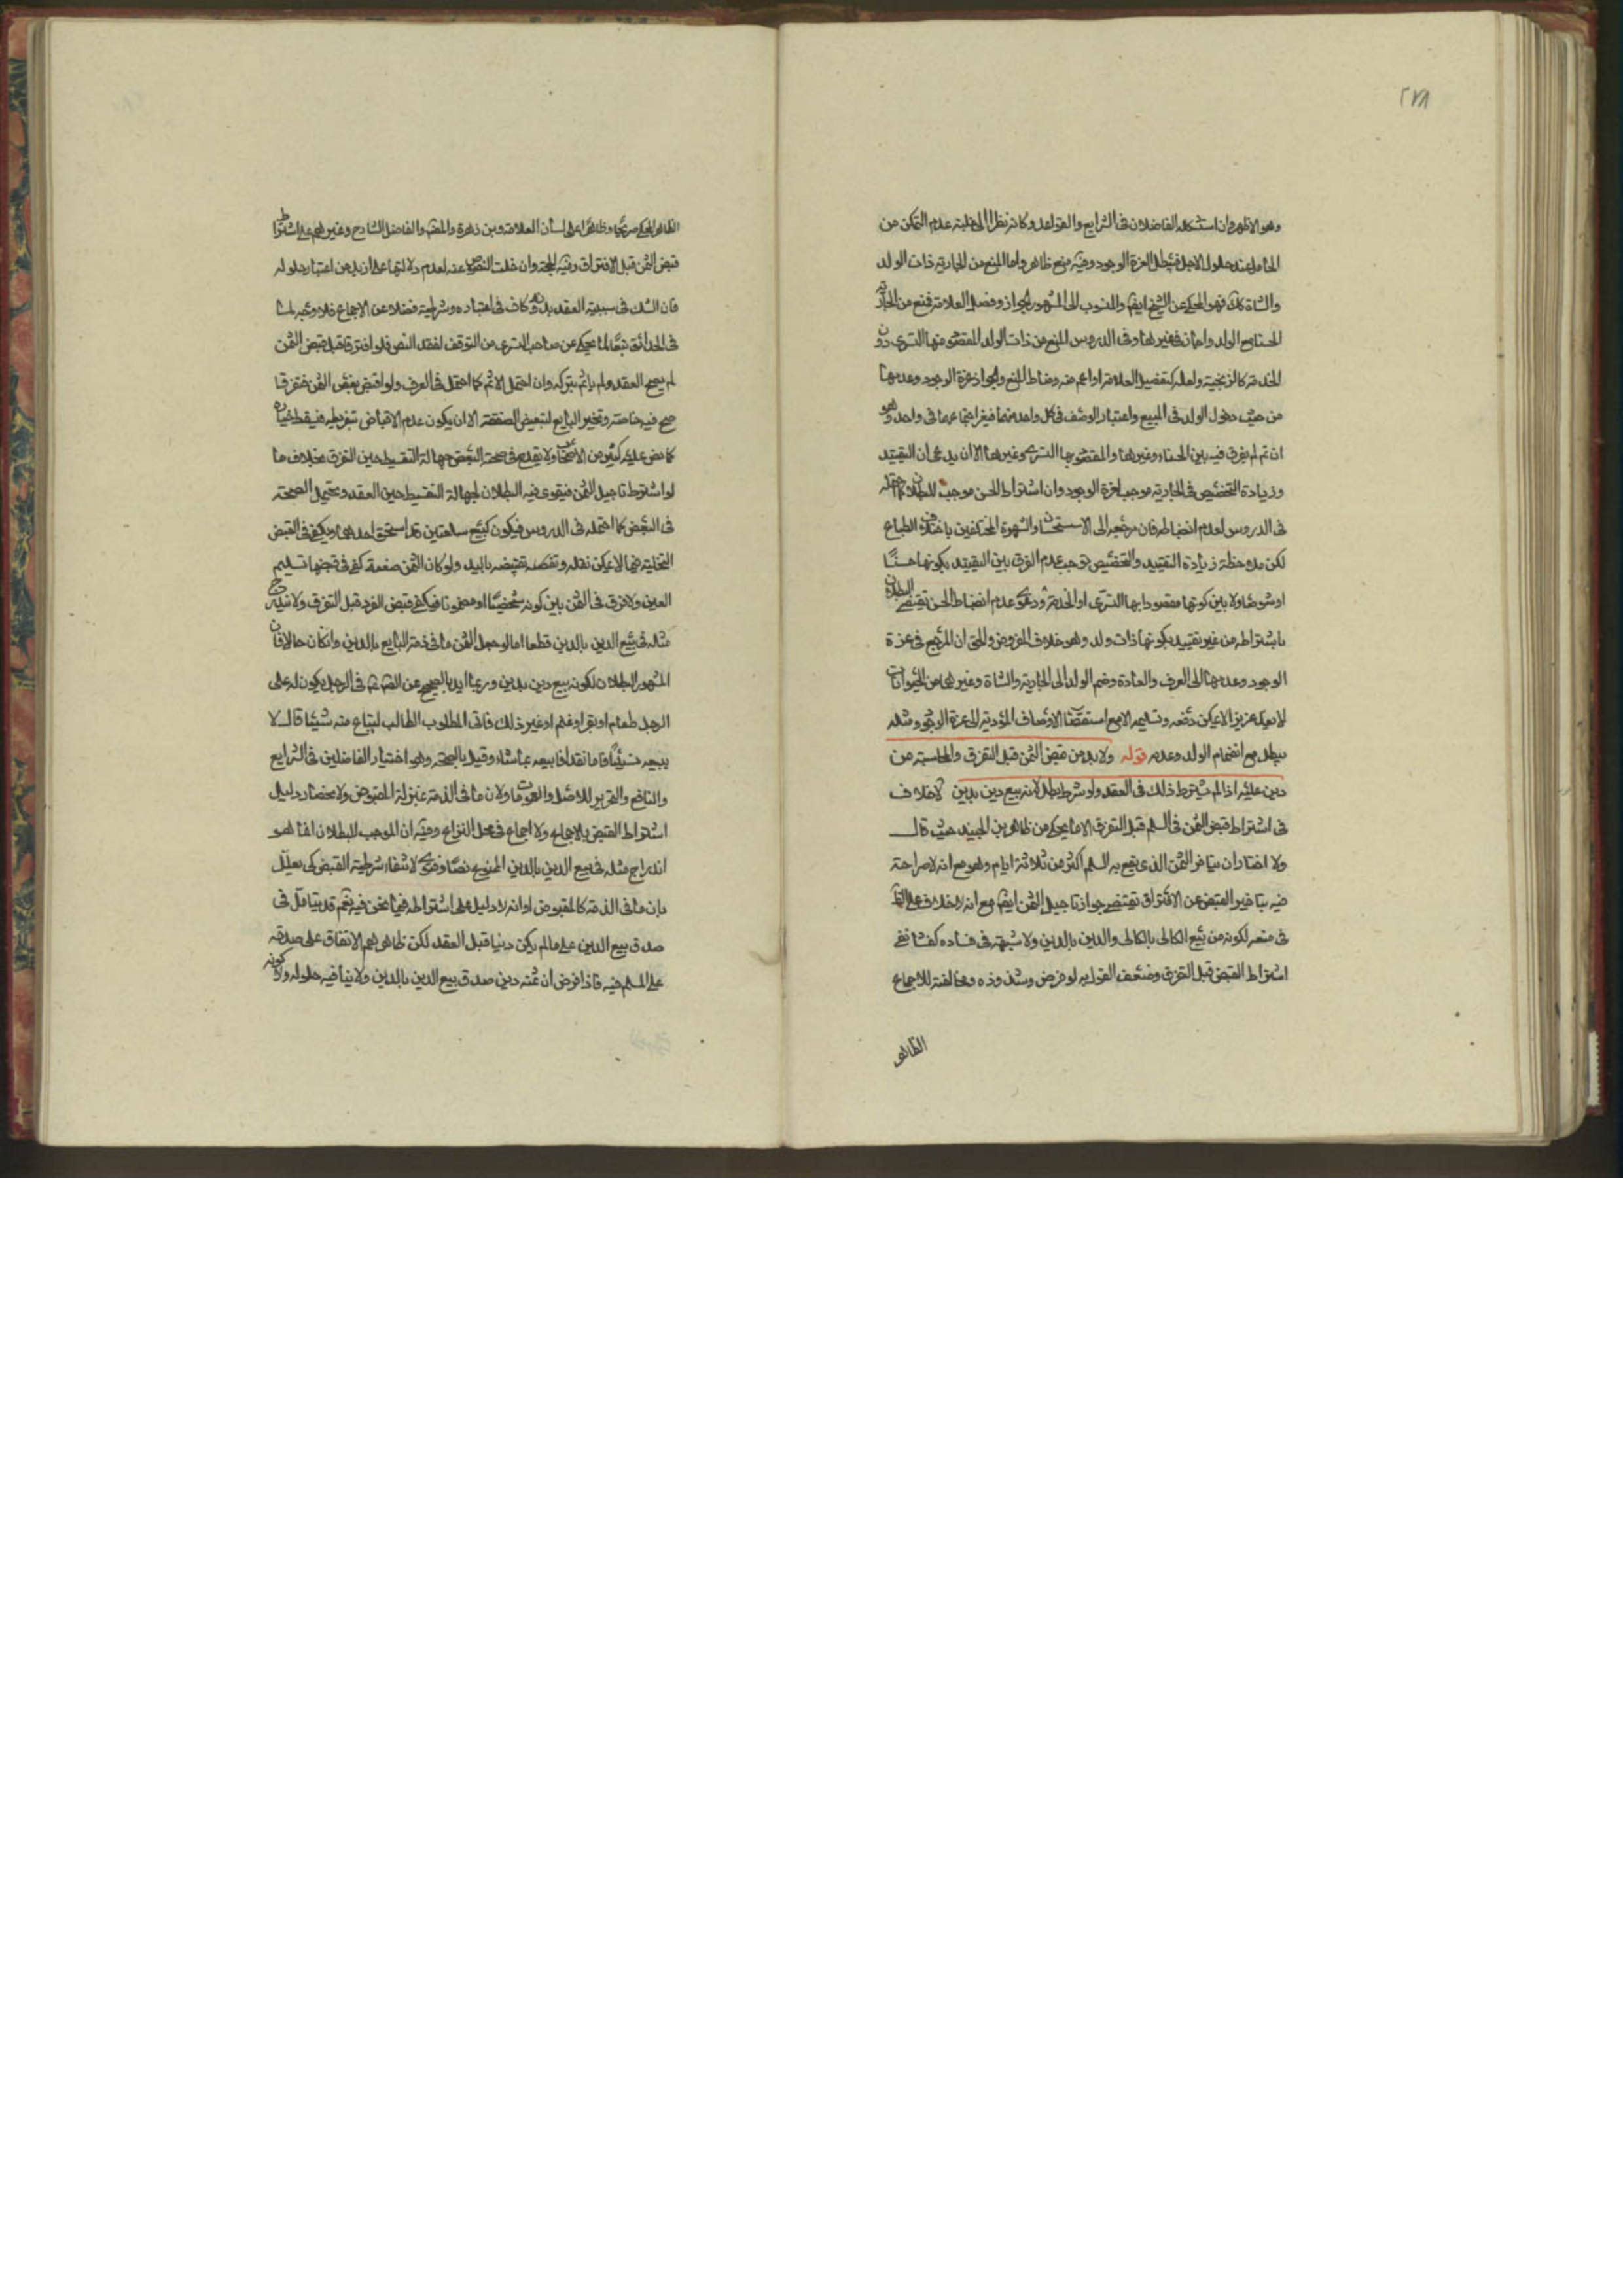 ٢٧٨
وهو الاظهر وان استشكله الفاضلان فى الشرايع والقواعد وكانه نظرا الى غلبة عدم التمكن من
الحامل عند حلول الاجل فيبطل لعزة الوجود وفيه منع ظاهر واما المنع من الجارية ذات الولد
والشاة كك فهو المحكى عن الشيخ ايضا والمنسوب الى المشهور الجواز وفصل العلامة فمنع من الجارية
الحسناء مع الولد واجازه فى غيرها وفى الدروس المنع من ذات الولد المقصود منها التسرى دون
الخدمة كالزنجية ولعله كتفصيل العلامة او اعم منه ومناط المنع والجواز عزة الوجود وعدمها
من حيث دخول الولد فى المبيع واعتبار الوصف فى كل واحد منهما فيعز اجتماعهما فى واحد وهو
ان تم لم يفرق فيه بين الحسناء وغيرها والمقصود بها التسرى وغيرها الا ان يدعى ان التقييد
وزيادة التخصيص فى الجارية موجب لعزة الوجود وان اشتراط الحسن موجب للبطلان كما احتمله
فى الدروس لعدم انضباطه فان مرجعه الى الاستحسان والشهوة المختلفين باختلاف الطباع
لكن ملاحظة زيادة التقييد والتخصيص توجب عدم الفرق بين التقييد بكونها حسنا
او شوهاء ولا بين كونها مقصودا بها التسرى او الخدمة ودعوى عدم انضباط الحسن تقتضى البطلان
باشتراطه من غير تقييد بكونها ذات ولد وهو خلاف المفروض والحق ان المرجع فى عزة
الوجود وعدمها الى العرف والعادة وضم الولد الى الجارية والشاة وغيرهما من الحيوانات
لا يعد عزيزا لا يمكن دفعه وتسليمه الا مع استقصاء الاوصاف المؤدية الى عزة الوجود ومثله
يبطل مع انضمام الولد وعدمه قوله ولا بد من قبض الثمن قبل التفرق والمحاسبة من
دين عليه اذا لم يشترط ذلك فى العقد ولو شرط بطل لانه بيع دين بدين لا خلاف
فى اشتراط قبض الثمن فى السلم قبل التفرق الا ما يحكى من ظاهر بن الجنيد حيث قال
ولا اختار ان يتاخر الثمن الذى يقع به السلم اكثر من ثلاثة ايام وهو مع انه لا صراحة
فيه بتاخير القبض عن الافتراق يقتضى جواز تاجيل الثمن ايضا مع انه لا خلاف على الظ
فى منعه لكونه من بيع الكالى بالكالى والدين بالدين ولا شبهة فى فساده كفساد نفى
اشتراط القبض قبل التفرق وضعف القول به لو فرض وشذوذه ومخالفته للاجماع
الظاهر
الظاهر المحكى صريحا وظاهرا على لسان العلامة وبن زهرة والمقد والفاضل الشارح وغيرهم على اشتراط
قبض الثمن قبل الافتراق وفيه الحجة وان خلت النصوص عنه لعدم دلالتها على ازيد من اعتبار حلوله
فان الشك فى سببية العقد بدونه كاف فى اعتباره وشرطيته فضلا عن الاجماع فلا وجه لما
فى الحدائق تبعا لما يحكى عن صاحب البشرى من التوقف لفقد النص فلو افترقا قبل قبض الثمن
لم يصح العقد ولم ياثم بتركه وان احتمل الاثم كما احتمل فى الصرف ولو اقبض بعض الثمن ثم تفرقا
صح فيه خاصة وتخير البايع لتبعيض الصفقة الا ان يكون عدم الاقباض بتفريطه فيسقط خياره
كما نص عليه كثير من الاصحاب ولا يقدح فى صحة البعض جهالة التقسيط حين التفرق بخلاف ما
لو اشترط تاجيل الثمن فيقوى فيه البطلان لجهالة التقسيط حين العقد ويحتمل الصحة
فى البعض كما احتمله فى الدروس فيكون كبيع سلعتين تم استحق احدهما ويكفى فى القبض
التخلية فيما لا يمكن نقله ونقصه بقبضه باليد ولو كان الثمن منفعة كفى فى قبضها تسليم
العين ولا فرق فى الثمن بين كونه شخصيا او مضمونا فيكفى قبض الفرد قبل التفرق ولا يندرج
مثله فى بيع الدين بالدين قطعا اما لو جعل الثمن ما فى ذمة البايع بالدين وان كان حالا فان
المشهور البطلان لكونه بيع دين بدين وربما ايد بالصحيح عن الصادق فى الرجل يكون له على
الرجل طعام او بقر او غنم او غير ذلك فاتى المطلوب الطالب ليبتاع منه شيئا قال لا
يبيعه نسيئا فاما نقدا فليبعه بما شاء وقيل بالصحة وهو اختيار الفاضلين فى الشرايع
والنافع والتحرير للاصل والعمومات ولان ما فى الذمة بمنزلة المقبوض ولانحصار دليل
اشتراط القبض بالاجماع ولا اجماع فى محل النزاع وفيه ان الموجب للبطلان انما هو
اندراج مثله فى بيع الدين بالدين المنهى عنه نصا وفتوى لا انتفاء شرطية القبض كى يعلل
بان ما فى الذمة كالمقبوض او انه لا دليل على اشتراطه فيما نحن فيه نعم قد يتامل فى
صدق بيع الدين على ما لم يكن دينا قبل العقد لكن ظاهرهم الاتفاق على صدقه
على المسلم فيه فاذا فرض ان ثمنه دين صدق بيع الدين بالدين ولا ينافيه حلوله ولا كونه